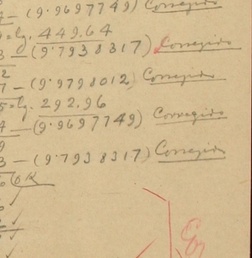 7 - (9.9697749) Corregido
= lg. 449.64
3 - (9.7938317) Corregido
2
7 - (9.9798012) Corregido
5 = lg. 292.96
4 - (9.9697749) Corregido
9
3 - (9.7938317) Corregido
6 OK